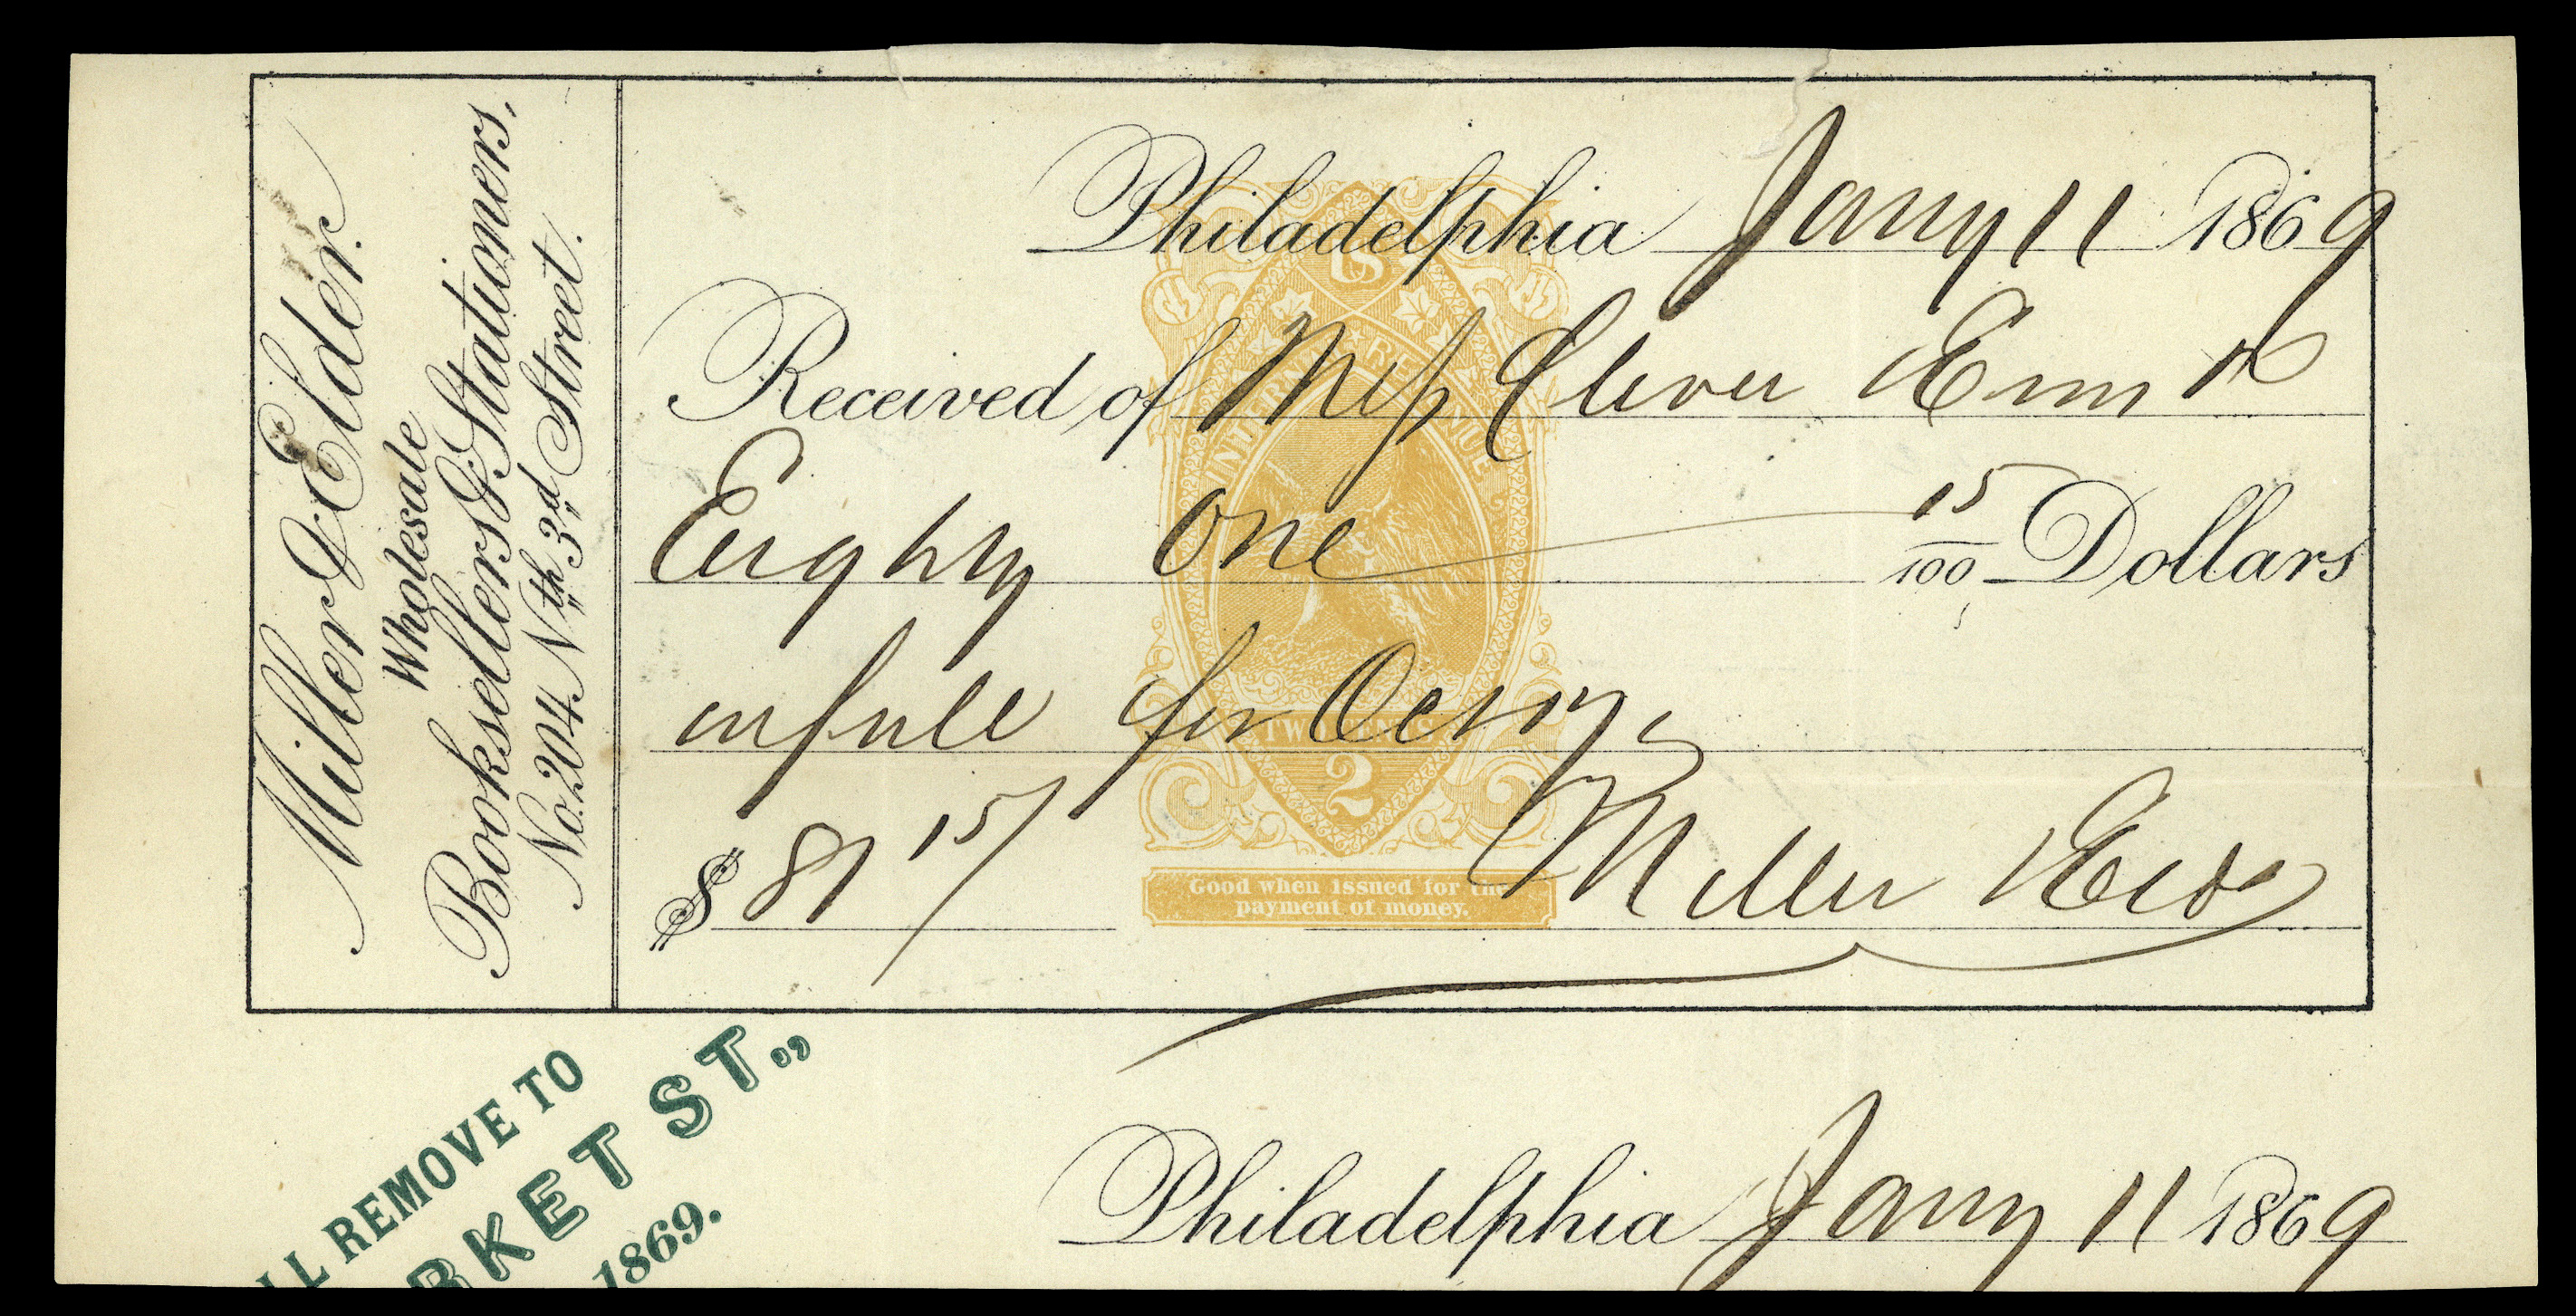 Miller & Elder.
Wholesale
Booksellers & Stationers,
No. 204 Nth 3rd Street.
Philadelphia Jany 11 1869
US
INTERNAL REVENUE
Received of Mess
Eighty One 15/100 Dollars
in full for
TWO CENTS
2
$ 81 15/
Miller & Elder
Good when issued for the
payment of money.
LL REMOVE TO
RKET ST.,,
1869.
Philadelphia Jany 11 1869